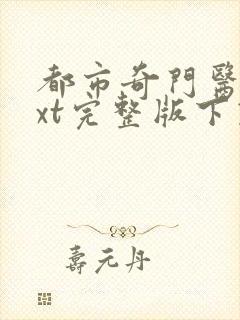 都市奇門醫
xt完整版下
壽元丹